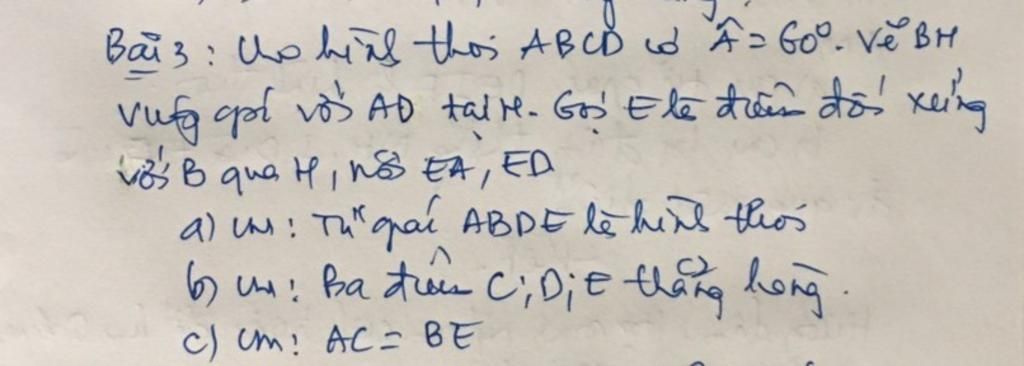 Bài 3: Cho hình thoi ABCD có Â = 60°. Vẽ BH
vuông góc với AD tại H. Gọi E là điểm đối xứng
với B qua H, nối EA, ED
a) CM: Tứ giác ABDE là hình thoi
b) CM: Ba điểm C; D; E thẳng hàng.
c) CM: AC = BE